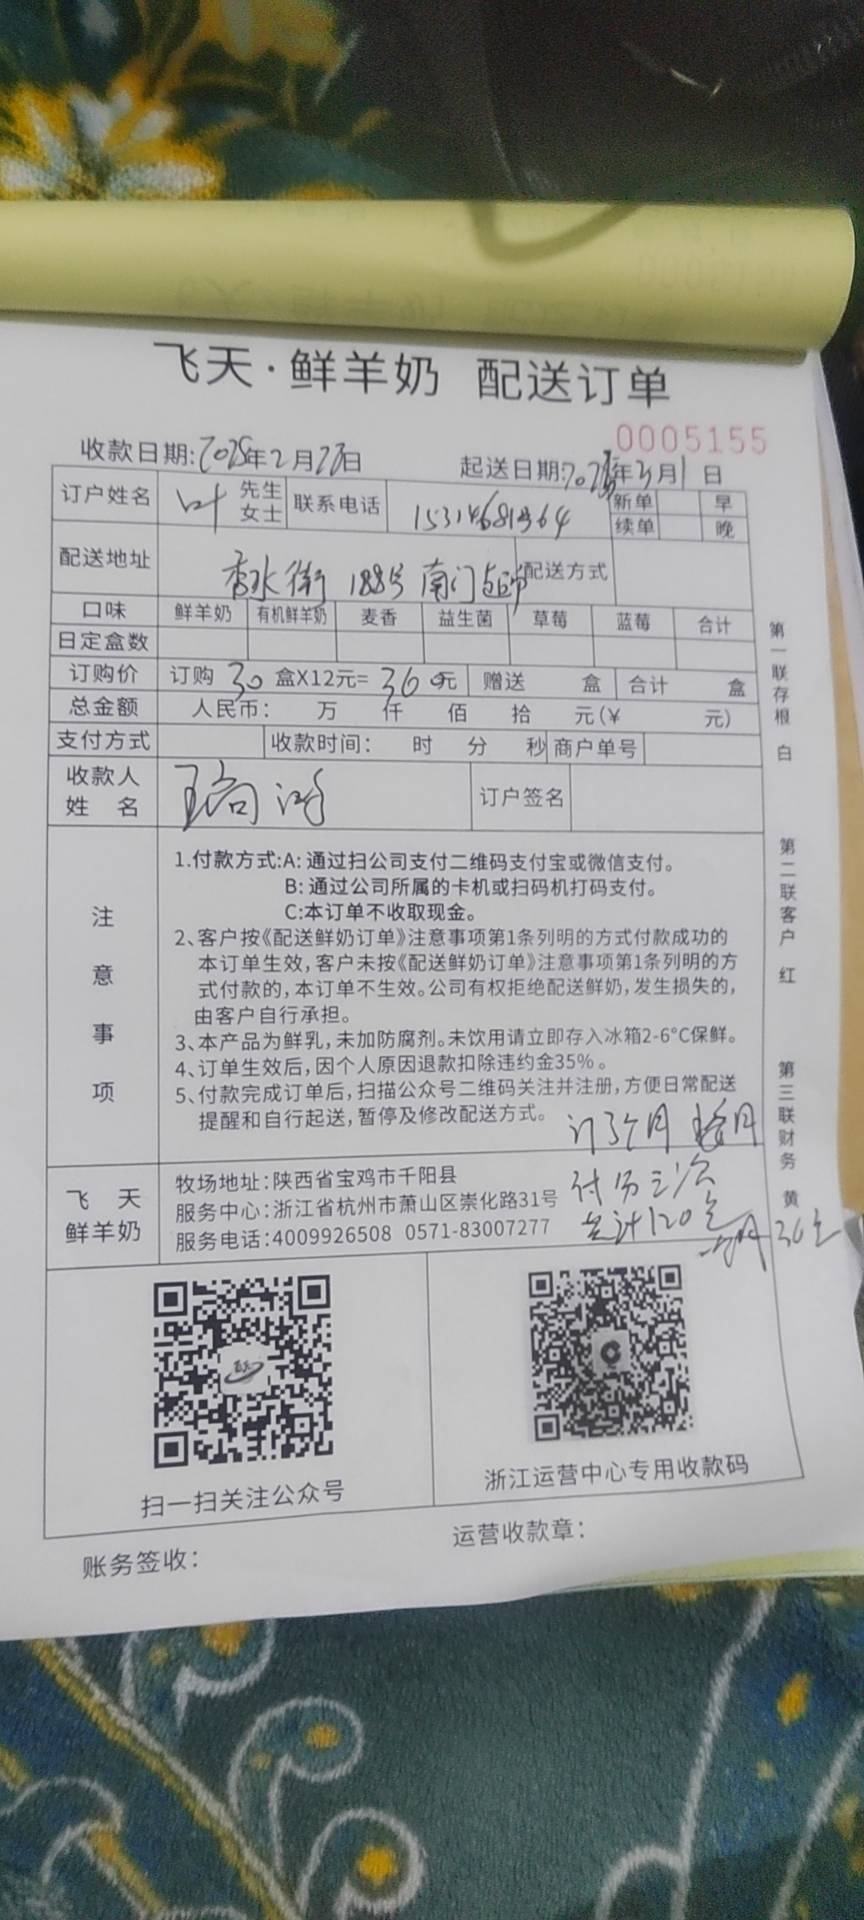 飞天·鲜羊奶 配送订单
0005155
收款日期:2025年2月23日 起送日期:2025年3月1日
订户姓名 叶 先生 女士 联系电话 新单 早
续单 晚
配送地址 香水街 188号 南门超市 配送方式
口味 鲜羊奶 有机鲜羊奶 麦香 益生菌 草莓 蓝莓 合计
日定盒数
订购价 订购 30 盒X12元= 360元 赠送 盒 合计 盒
总金额 人民币: 万 仟 佰 拾 元(¥ 元)
支付方式 收款时间: 时 分 秒 商户单号
收款人姓名 订户签名
注意事项
1.付款方式:A: 通过扫公司支付二维码支付宝或微信支付。
B: 通过公司所属的卡机或扫码机打码支付。
C:本订单不收取现金。
2、客户按《配送鲜奶订单》注意事项第1条列明的方式付款成功的
本订单生效,客户未按《配送鲜奶订单》注意事项第1条列明的方
式付款的,本订单不生效。公司有权拒绝配送鲜奶,发生损失的,
由客户自行承担。
3、本产品为鲜乳,未加防腐剂。未饮用请立即存入冰箱2-6°C保鲜。
4、订单生效后,因个人原因退款扣除违约金35%。
5、付款完成订单后,扫描公众号二维码关注并注册,方便日常配送
提醒和自行起送,暂停及修改配送方式。
订3个月
飞天鲜羊奶
牧场地址:陕西省宝鸡市千阳县
服务中心:浙江省杭州市萧山区崇化路31号
服务电话:4009926508 0571-83007277
付 三次
共计120元
扫一扫关注公众号
浙江运营中心专用收款码
账务签收:
运营收款章:
第一联存根 白
第二联客户 红
第三联财务 黄